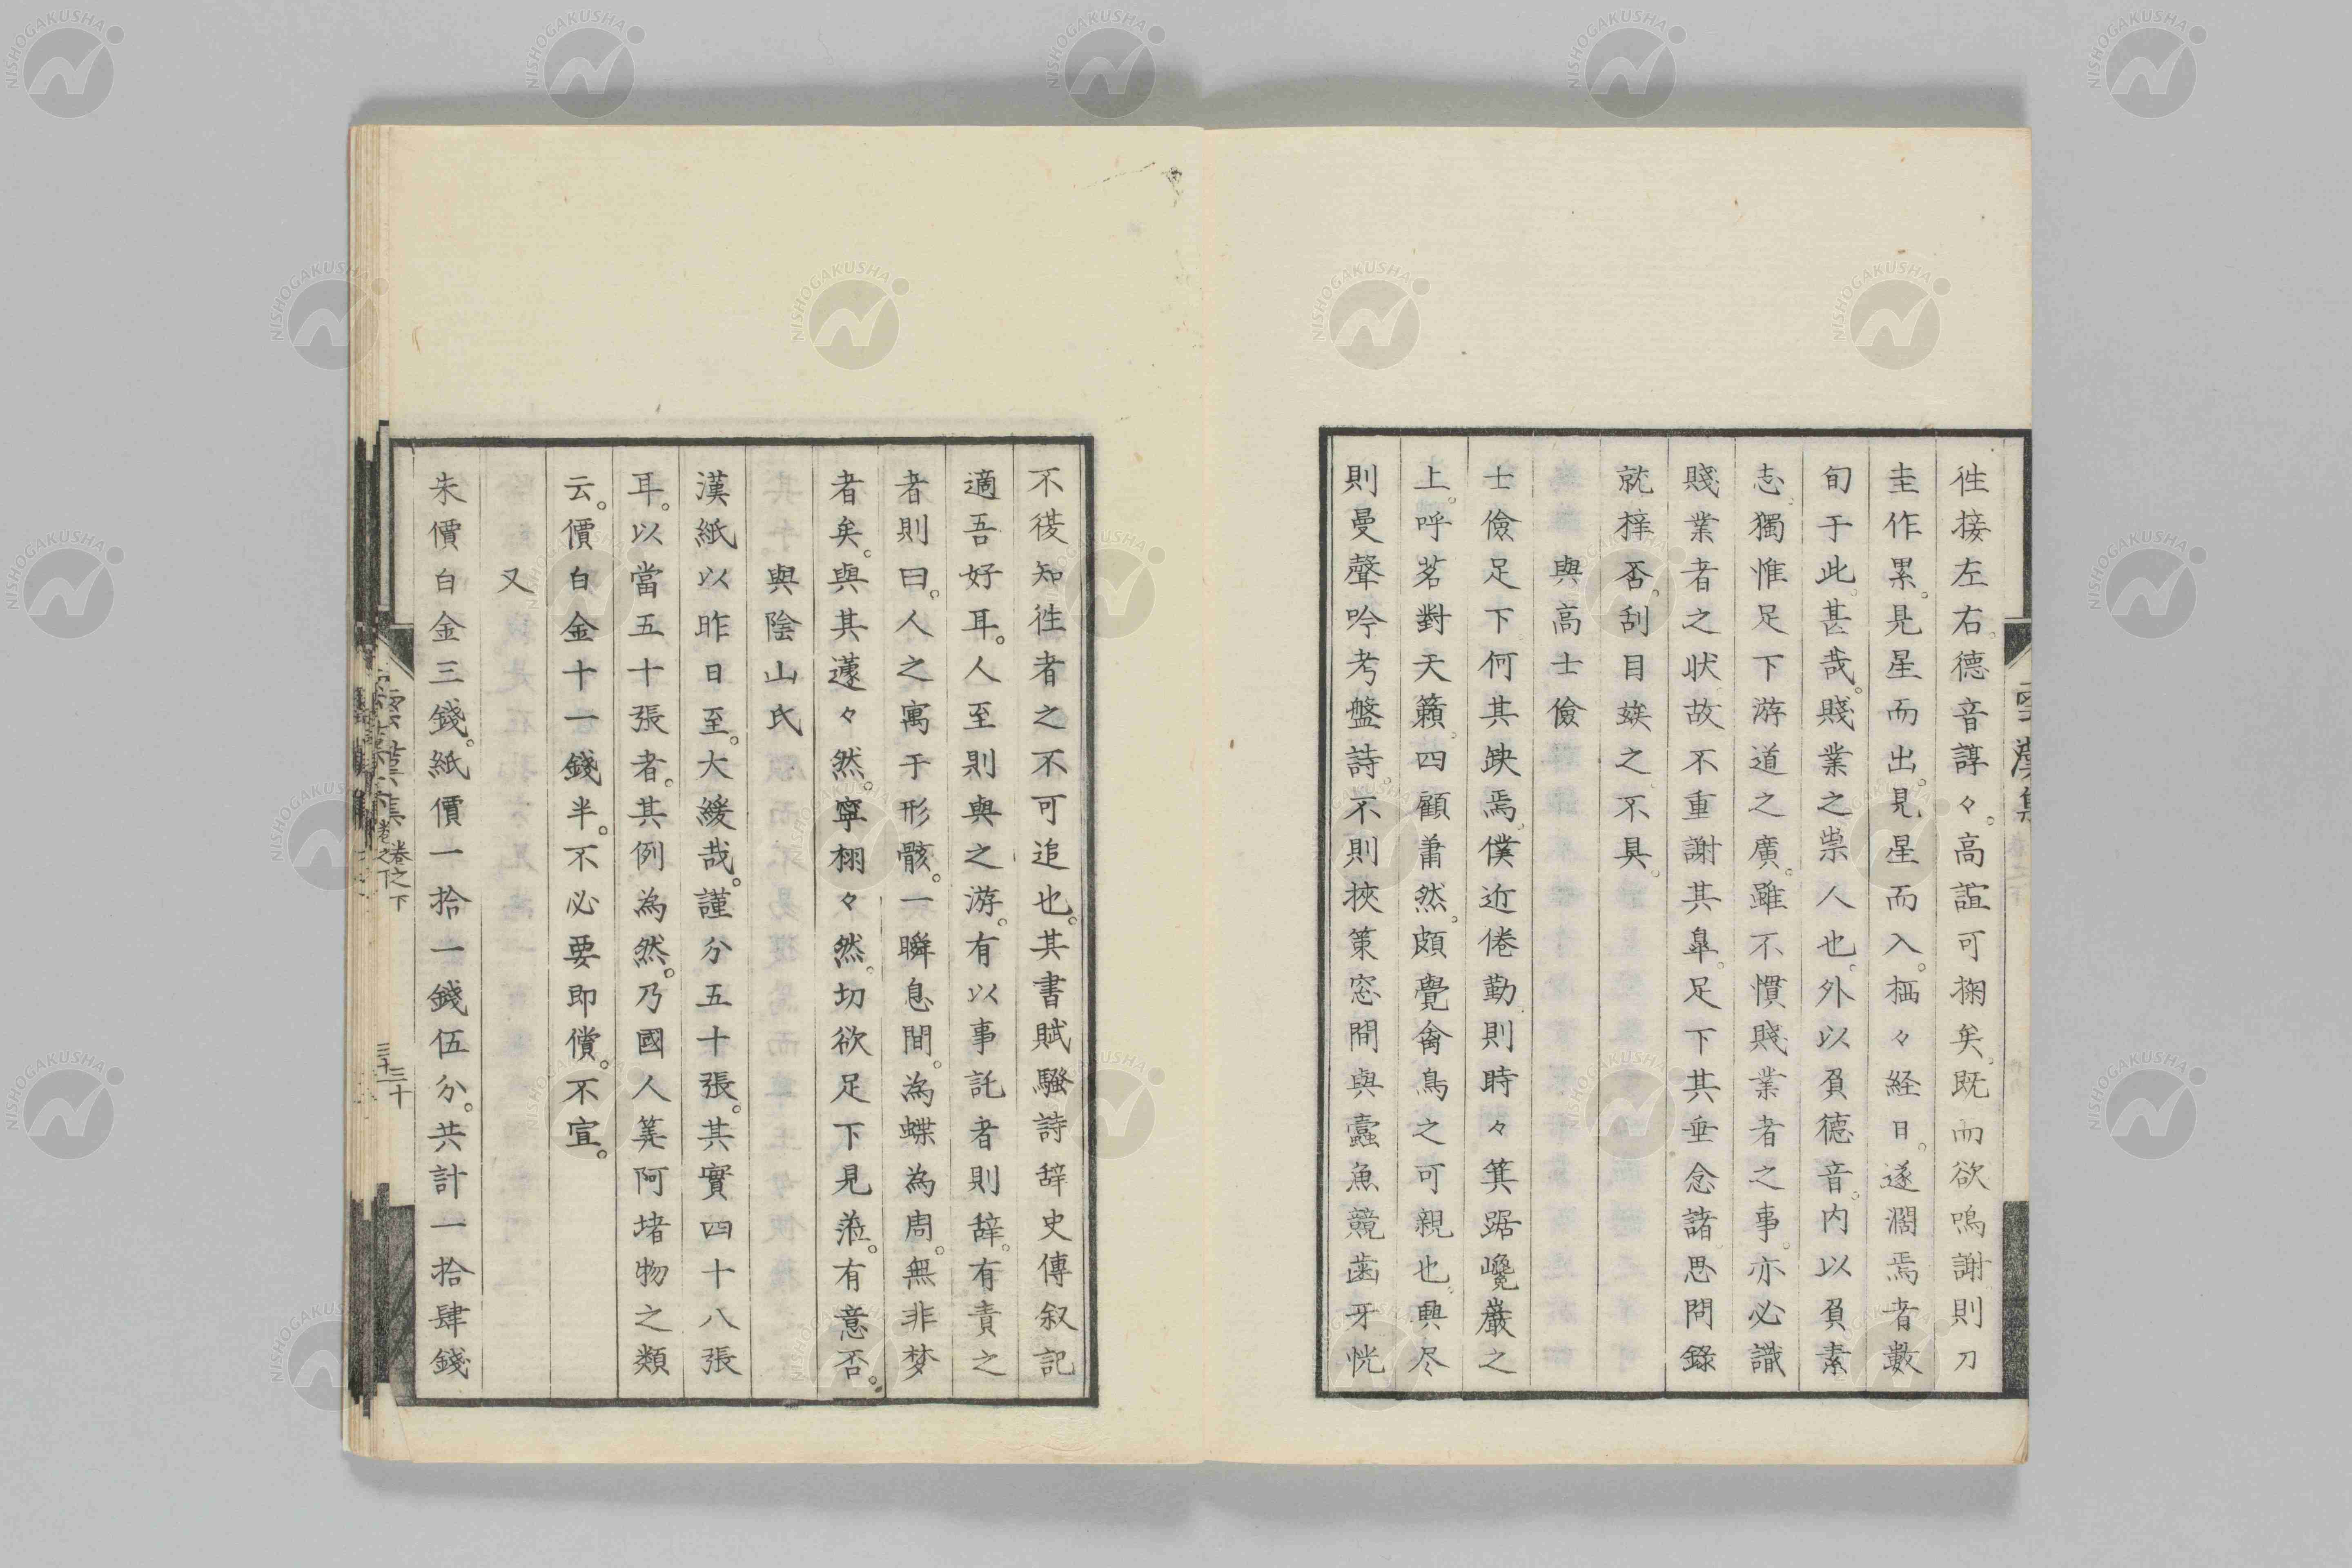 徃接左右。德音諄々。高誼可掬矣。既而欲鳴謝則刀
圭作累。見星而出。見星而入。栖々経日。遂濶焉者數
旬于此。甚哉。賤業之祟人也。外以負德音。内以負素
志。獨惟足下游道之廣。雖不慣賤業者之事。亦必識
賤業者之状。故不重謝其辠。足下其垂念諸。思問錄
就梓否。刮目竢之。不具。
與高士儉
士儉足下。何其缺焉。僕近倦勤。則時々箕踞巉巖之
上。呼茗對天籟。四顧蕭然。頗覺禽鳥之可親也。興尽
則曼聲吟考盤詩。不則挾策窓間與蠹魚競齒牙。恍
不復知徃者之不可追也。其書賦騷詩辞史傳叙記
適吾好耳。人至則與之游。有以事託者則辞。有責之
者則曰。人之寓于形骸。一瞬息間。為蝶為周。無非梦
者矣。與其蘧々然。寧栩々然。切欲足下見涖。有意否。
與陰山氏
漢紙以昨日至。大緩哉。謹分五十張。其實四十八張
耳。以當五十張者。其例為然。乃國人筭阿堵物之類
云。價白金十一錢半。不必要即償。不宣。
又
朱價白金三錢。紙價一拾一錢伍分。共計一拾肆錢
雲漢集
卷之下
三十
NISHOGAKUSHA